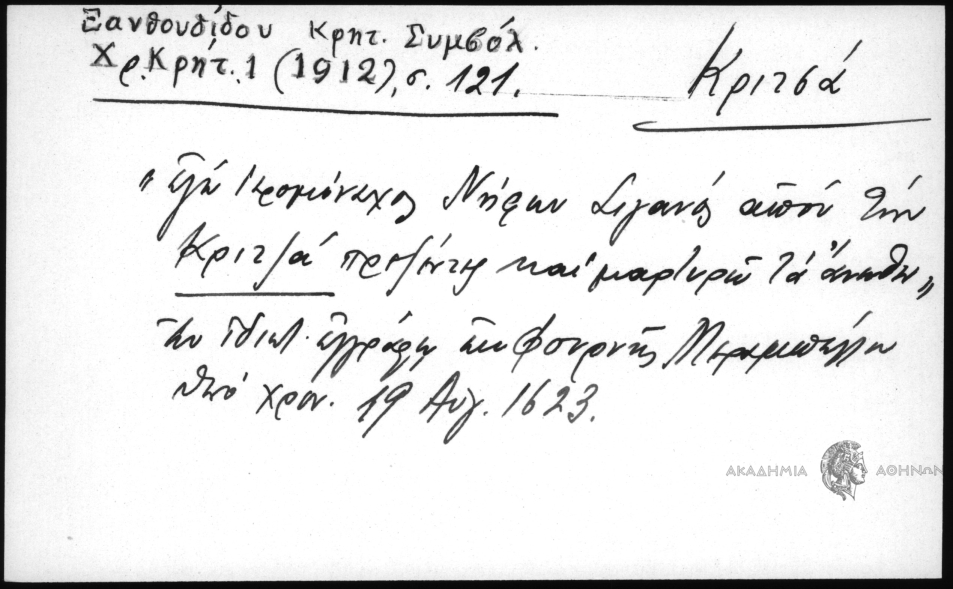 Ξανθουδίδου Κρητ. Συμβόλ.
Χρ. Κρήτ. 1 (1912), σ. 121.
Κριτσά
„ ἐγώ ἱερομόναχος Νήφων Σιγανός ἀπού τήν
Κριτζά πρεζέντης καί μαρτυρῶ τά ἄνωθε „
ἐν ἰδιωτ. ἐγγράφῳ ἐκ Φουρνῆς Μεραμπέλλου
ὑπό χρον. 19 Αὐγ. 1623.
ΑΚΑΔΗΜΙΑ ΑΘΗΝΩΝ